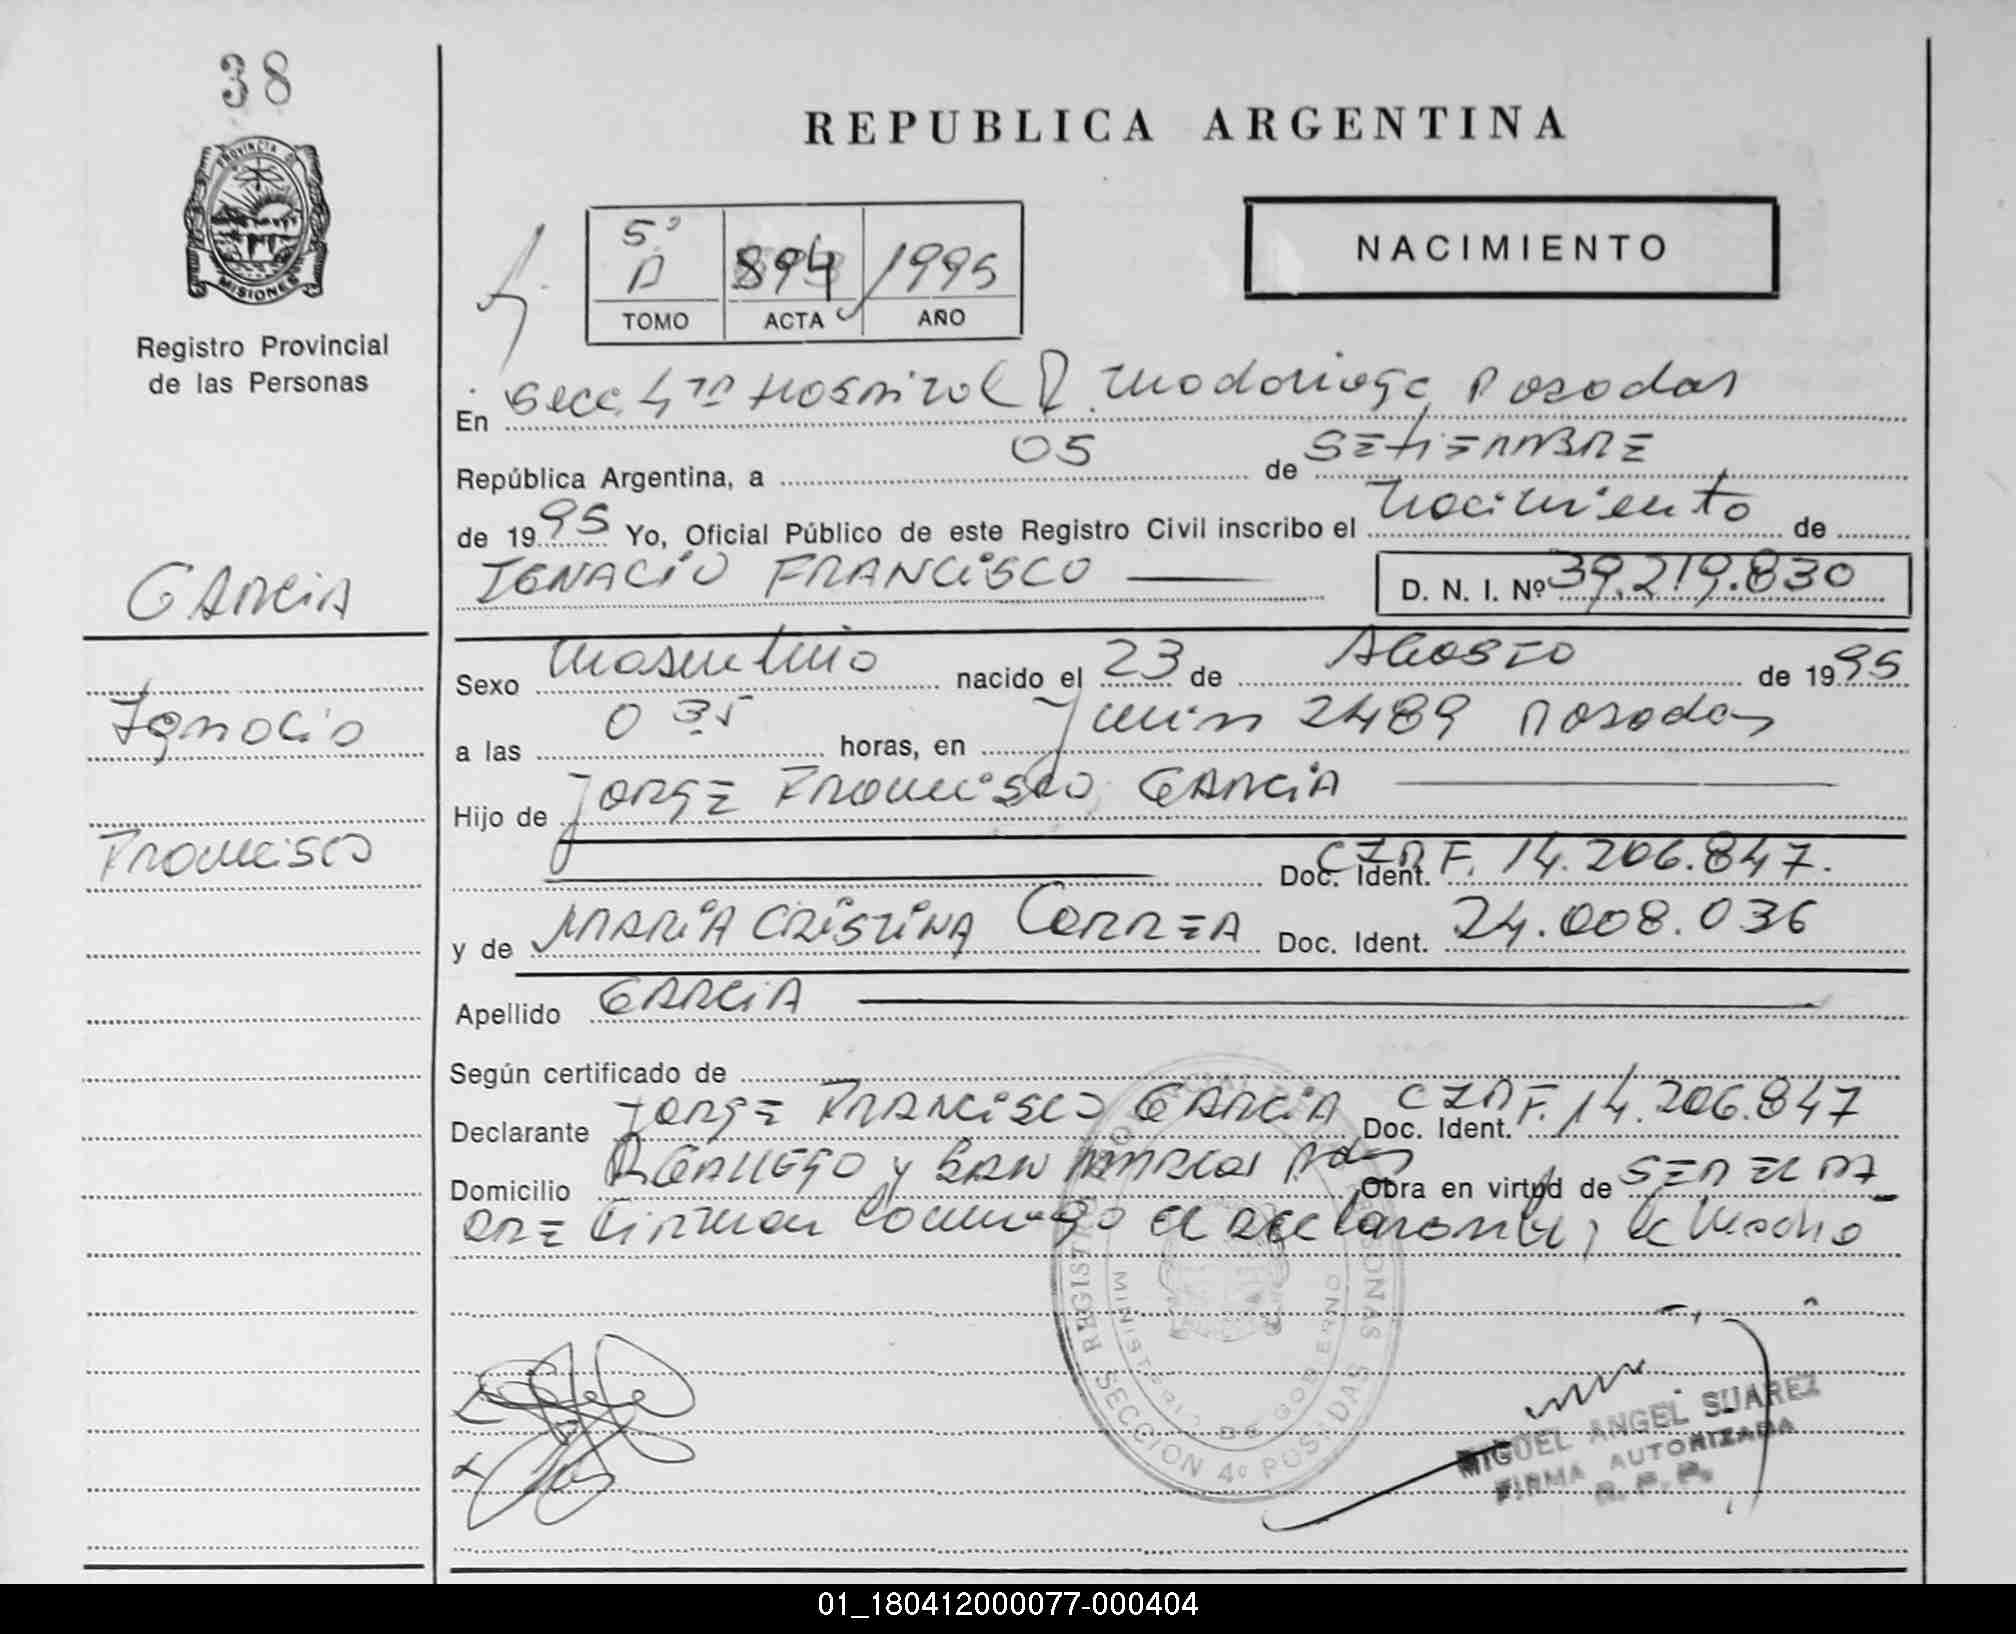 38
PROVINCIA DE
MISIONES
Registro Provincial
de las Personas
GARCIA
Ignacio
Francisco
REPUBLICA ARGENTINA
5º
A 894 1995
TOMO ACTA AÑO
NACIMIENTO
En Secc. 4ta Hospital R. Madariaga Posadas
República Argentina, a 05 de SETIEMBRE
de 1995 Yo, Oficial Público de este Registro Civil inscribo el nacimiento de
IGNACIO FRANCISCO D. N. I. Nº 39.219.830
Sexo masculino nacido el 23 de AGOSTO de 1995
a las 0 35 horas, en Junin 2489 Posadas
Hijo de JORGE FRANCISCO GARCIA
Doc. Ident. F. 14.206.847.
y de MARIA CRISTINA CORREA Doc. Ident. 24.008.036
Apellido GARCIA
Según certificado de
Declarante JORGE FRANCISCO GARCIA Doc. Ident. F. 14.206.847
Domicilio R GALLEGO y SAN MARCOS Pdas Obra en virtud de SER EL PA
DRE Firman conmigo el declarante y la madre
REGISTRO PERSONAS
MINISTERIO DE GOBIERNO
SECCION 4º POSADAS
MIGUEL ANGEL SUAREZ
FIRMA AUTORIZADA
R. P. P.
01_180412000077-000404